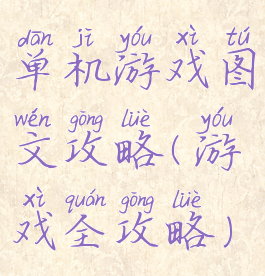 dān jī yóu xì tú
单机游戏图
wén gōng lüè yóu
文攻略(游
xì quán gōng lüè
戏全攻略)